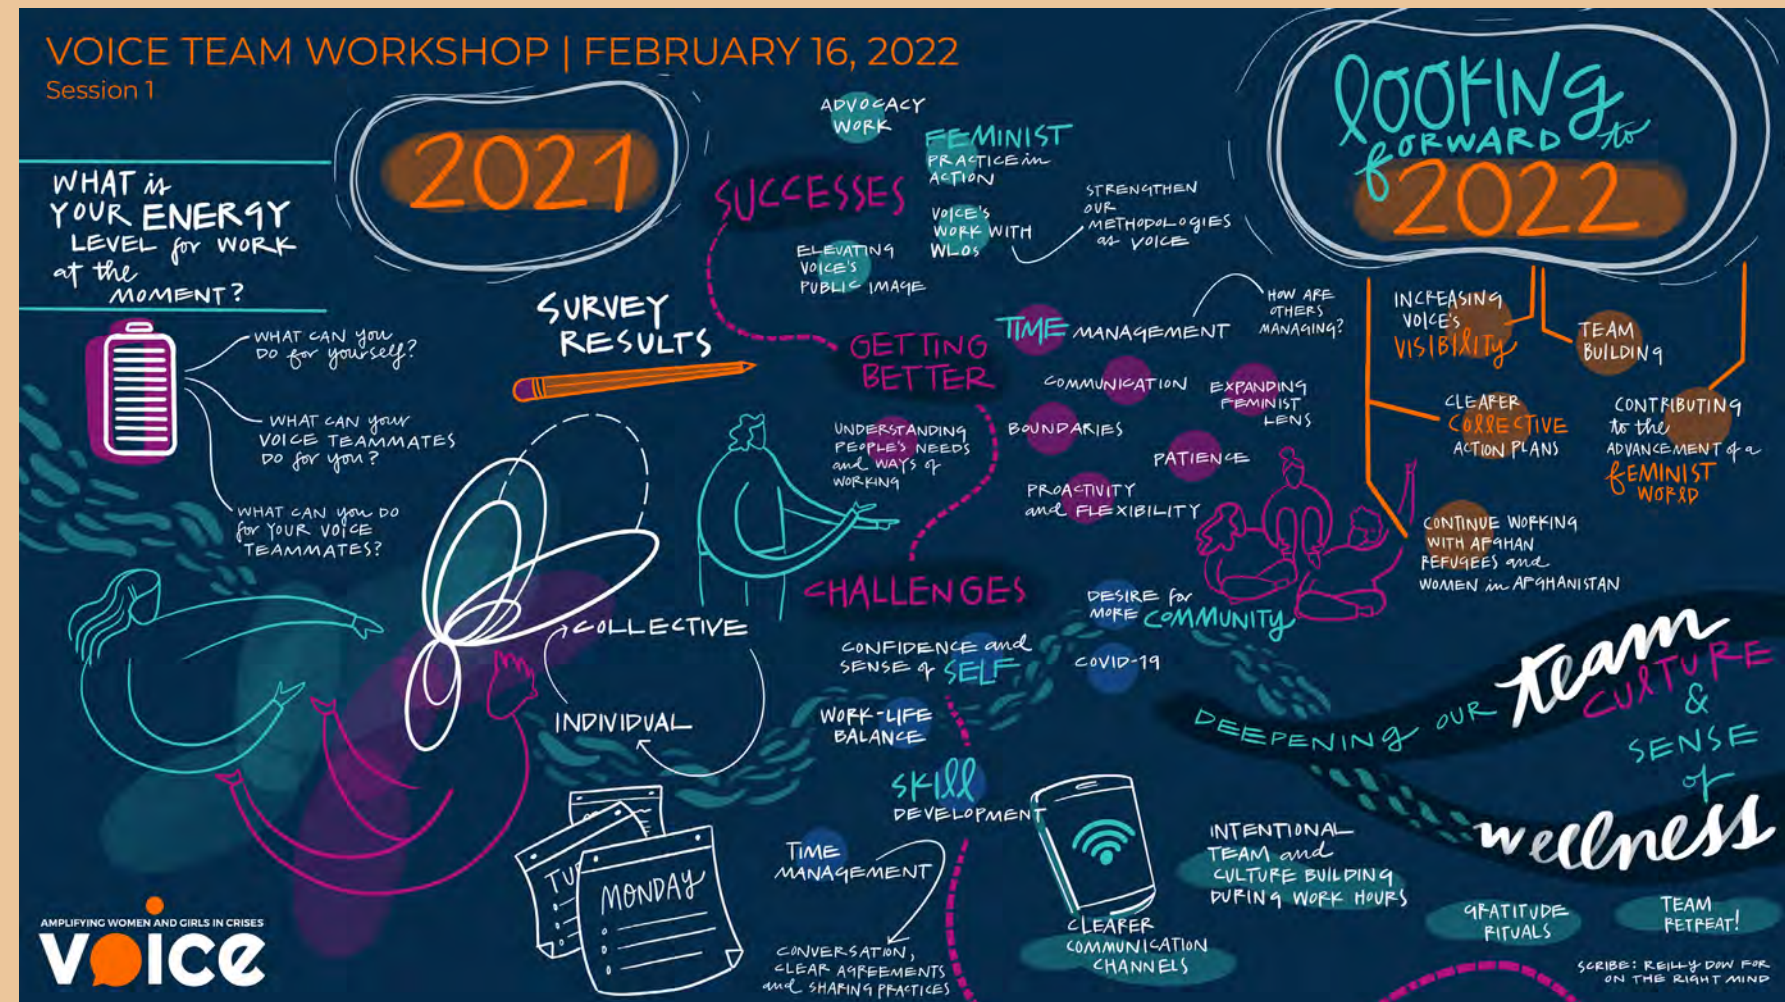 VOICE TEAM WORKSHOP | FEBRUARY 16, 2022
Session 1
2021
WHAT is
YOUR ENERGY
LEVEL for WORK
at the
MOMENT?
WHAT CAN you
DO for yourself?
WHAT CAN your
VOICE TEAMMATES
DO for you?
WHAT CAN you DO
for YOUR VOICE
TEAMMATES?
SURVEY
RESULTS
COLLECTIVE
INDIVIDUAL
SUCCESSES
ADVOCACY
WORK
FEMINIST
PRACTICE in
ACTION
VOICE'S
WORK WITH
WLOs
STRENGTHEN
OUR
METHODOLOGIES
as VOICE
ELEVATING
VOICE'S
PUBLIC IMAGE
GETTING
BETTER
TIME MANAGEMENT
HOW ARE
OTHERS
MANAGING?
COMMUNICATION
EXPANDING
FEMINIST
LENS
UNDERSTANDING
PEOPLE'S NEEDS
and WAYS of
WORKING
BOUNDARIES
PATIENCE
PROACTIVITY
and FLEXIBILITY
CHALLENGES
DESIRE for
MORE COMMUNITY
CONFIDENCE and
SENSE of SELF
COVID-19
WORK-LIFE
BALANCE
SKILL
DEVELOPMENT
TIME
MANAGEMENT
CONVERSATION,
CLEAR AGREEMENTS
and SHARING PRACTICES
TU
MONDAY
CLEARER
COMMUNICATION
CHANNELS
LOOKING
FORWARD to
2022
INCREASING
VOICE'S
VISIBILITY
TEAM
BUILDING
CLEARER
COLLECTIVE
ACTION PLANS
CONTRIBUTING
to the
ADVANCEMENT of a
FEMINIST
WORLD
CONTINUE WORKING
WITH AFGHAN
REFUGEES and
WOMEN in AFGHANISTAN
DEEPENING OUR team
CULTURE
&
SENSE
of
wellness
INTENTIONAL
TEAM and
CULTURE BUILDING
DURING WORK HOURS
GRATITUDE
RITUALS
TEAM
RETREAT!
SCRIBE: REILLY DOW FOR
ON THE RIGHT MIND
AMPLIFYING WOMEN AND GIRLS IN CRISES
VOICE